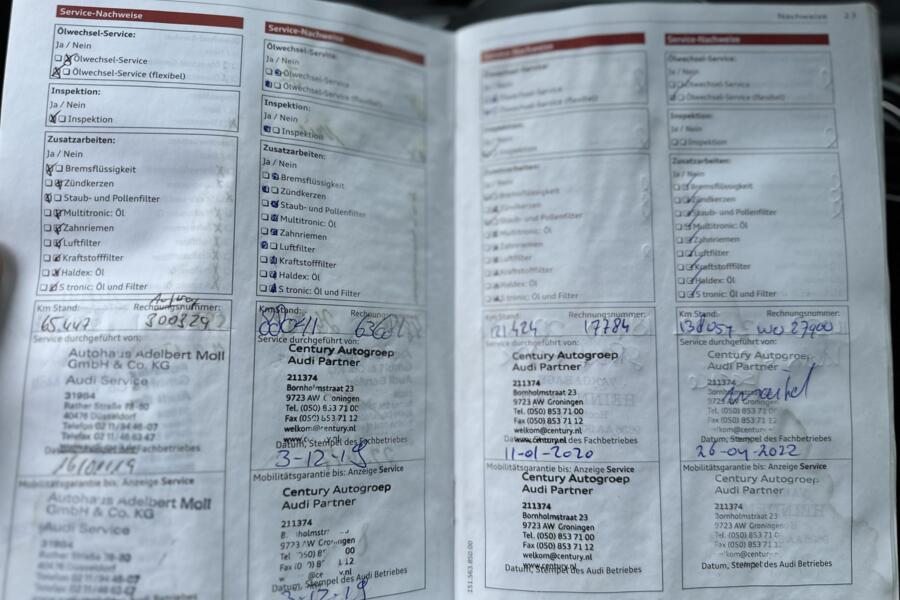 Nachweise 23
Service-Nachweise
Ölwechsel-Service:
Ja / Nein
Ölwechsel-Service
Ölwechsel-Service (flexibel)
Inspektion:
Ja / Nein
Inspektion
Zusatzarbeiten:
Ja / Nein
Bremsflüssigkeit
Zündkerzen
Staub- und Pollenfilter
Multitronic: Öl
Zahnriemen
Luftfilter
Kraftstofffilter
Haldex: Öl
S tronic: Öl und Filter
Km Stand: Rechnungsnummer:
65.447 300329
Service durchgeführt von:
Autohaus Adelbert Moll
GmbH & Co. KG
Audi Service
31984
Rather Straße 78-80
40476 Düsseldorf
Mobilitätsgarantie bis: Anzeige Service
Autohaus Adelbert Moll
GmbH & Co. KG
Audi Service
Service-Nachweise
Ölwechsel-Service:
Ja / Nein
Ölwechsel-Service
Ölwechsel-Service (flexibel)
Inspektion:
Ja / Nein
Inspektion
Zusatzarbeiten:
Ja / Nein
Bremsflüssigkeit
Zündkerzen
Staub- und Pollenfilter
Multitronic: Öl
Zahnriemen
Luftfilter
Kraftstofffilter
Haldex: Öl
S tronic: Öl und Filter
Km Stand:
Service durchgeführt von:
Century Autogroep
Audi Partner
211374
Bornholmstraat 23
9723 AW Groningen
Tel. (050) 853 71 00
Fax (050) 853 71 12
welkom@century.nl
Datum, Stempel des Fachbetriebes
3-12-19
Mobilitätsgarantie bis: Anzeige Service
Century Autogroep
Audi Partner
211374
9723 AW Groningen
Datum, Stempel des Audi Betriebes
3-12-19
Service-Nachweise
Ölwechsel-Service
Ja / Nein
Ölwechsel-Service
Ölwechsel-Service (flexibel)
Inspektion:
Ja / Nein
Inspektion
Zusatzarbeiten:
Ja / Nein
Bremsflüssigkeit
Zündkerzen
Staub- und Pollenfilter
Multitronic: Öl
Zahnriemen
Luftfilter
Kraftstofffilter
Haldex: Öl
S tronic: Öl und Filter
Km Stand: Rechnungsnummer:
121.424 17784
Service durchgeführt von:
Century Autogroep
Audi Partner
211374
Bornholmstraat 23
9723 AW Groningen
Tel. (050) 853 71 00
Fax (050) 853 71 12
welkom@century.nl
www.century.nl
Datum, Stempel des Fachbetriebes
11-01-2020
Mobilitätsgarantie bis: Anzeige Service
Century Autogroep
Audi Partner
211374
Bornholmstraat 23
9723 AW Groningen
Tel. (050) 853 71 00
Fax (050) 853 71 12
welkom@century.nl
www.century.nl
Datum, Stempel des Audi Betriebes
151.563.850.00
Service-Nachweise
Ölwechsel-Service:
Ja / Nein
Ölwechsel-Service
Ölwechsel-Service (flexibel)
Inspektion:
Ja / Nein
Inspektion
Zusatzarbeiten:
Ja / Nein
Bremsflüssigkeit
Zündkerzen
Staub- und Pollenfilter
Multitronic: Öl
Zahnriemen
Luftfilter
Kraftstofffilter
Haldex: Öl
S tronic: Öl und Filter
Km Stand: Rechnungsnummer:
138057 wo 27900
Service durchgeführt von:
Century Autogroep
Audi Partner
211374
9723 AW Groningen
Tel. (050) 853 71
Fax (050) 853 71
Datum, Stempel des Fachbetriebes
26-04-2022
Mobilitätsgarantie bis: Anzeige Service
Century Autogroep
Audi Partner
211374
Bornholmstraat 23
9723 AW Groningen
Datum, Stempel des Audi Betriebes